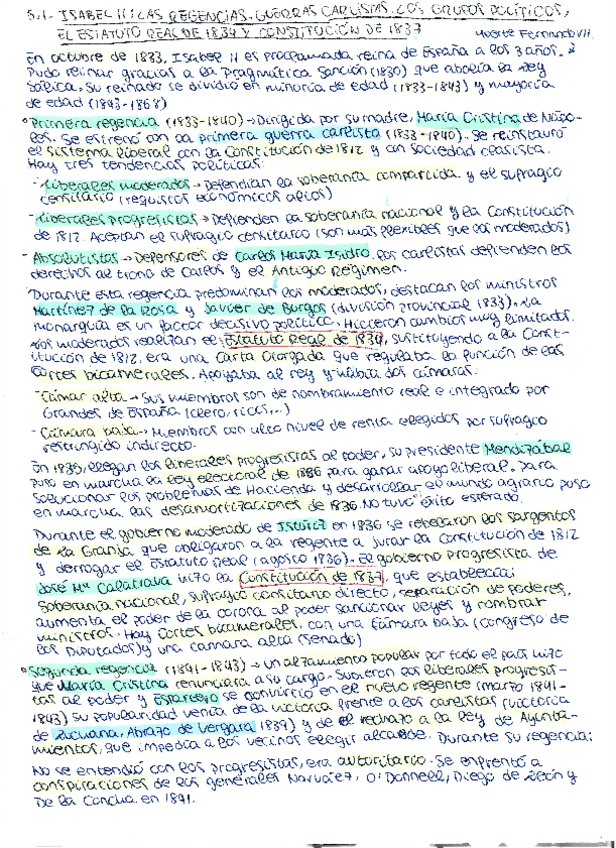 5.1- ISABEL II: LAS REGENCIAS. GUERRAS CARLISTAS. LOS GRUPOS POLÍTICOS,
EL ESTATUTO REAL DE 1834 Y CONSTITUCIÓN DE 1837
Muerte Fernando VII.
En octubre de 1833, Isabel II es proclamada reina de España a los 3 años.
Pudo reinar gracias a la Pragmática Sanción (1830) que abolía la Ley
Sálica. Su reinado se dividió en minoría de edad (1833-1843) y mayoría
de edad (1843-1868)
Primera regencia (1833-1840) → Dirigida por su madre, María Cristina de Nápo-
les. Se estrenó con la primera guerra carlista (1833-1840). Se reinstauró
el sistema liberal con la Constitución de 1812 y un sociedad clasista.
Hay tres tendencias políticas:
- Liberales moderados → Defendían la soberanía compartida y el sufragio
censitario (requisitos económicos altos)
- Liberales progresistas → Defienden la soberanía nacional y la Constitución
de 1812. Aceptan el sufragio censitario (son más flexibles que los moderados)
- Absolutistas → Defensores de Carlos María Isidro. Los carlistas defienden los
derechos al trono de Carlos y el Antiguo Régimen.
Durante esta regencia predominan los moderados, destacan los ministros
Martínez de la Rosa y Javier de Burgos (división provincial 1833). La
monarquía es un factor decisivo político. Hicieron cambios muy limitados.
Los moderados realizan el Estatuto Real de 1834, sustituyendo a la Const-
itución de 1812. era una Carta Otorgada que regulaba la función de las
Cortes bicamerales. Apoyaba al rey y había dos cámaras:
- Cámar alta → Sus miembros son de nombramiento real e integrado por
Grandes de España (clero, ricos,...)
- Cámara baja → Miembros con alto nivel de renta elegidos por sufragio
restringido indirecto.
En 1835, llegan los liberales progresistas al poder, su presidente Mendizábal
puso en marcha la ley electoral de 1836 para ganar apoyo liberal. Para
solucionar los problemas de Hacienda y desarrollar el mundo agrario puso
en marcha las desamortizaciones de 1836. No tuvo éxito esperado.
Durante el gobierno moderado de Istúriz en 1836 se rebelaron los sargentos
de La Granja que obligaron a la regente a jurar la Constitución de 1812
y derrogar el Estatuto Real (agosto 1836). El gobierno progresista de
José Mª Calatrava hizo la Constitución de 1837, que establecía:
Soberanía nacional, sufragio censitario directo, separación de poderes,
aumenta el poder de la corona al poder sancionar leyes y nombrar
ministros. Hay Cortes bicamerales, con una Cámara baja (congreso de
los Diputados) y una cámara alta (senado)
Segunda regencia (1841-1843) → un alzamiento popular por todo el país hizo
que María Cristina renunciara a su cargo. Subieron los liberales progresis-
tas al poder y Espartero se convirtió en el nuevo regente (marzo 1841-
1843) su popularidad venía de la victoria frente a los carlistas (victoria
de Luchana, Abrazo de Vergara 1839) y de el rechazo a la ley de Ayunta-
mientos, que impedía a los vecinos elegir alcalde. Durante su regencia:
No se entendió con los progresistas, era autoritario. Se enfrentó a
conspiraciones de los generales Narváez, O'Donnell, Diego de León y
De la Concha en 1841.